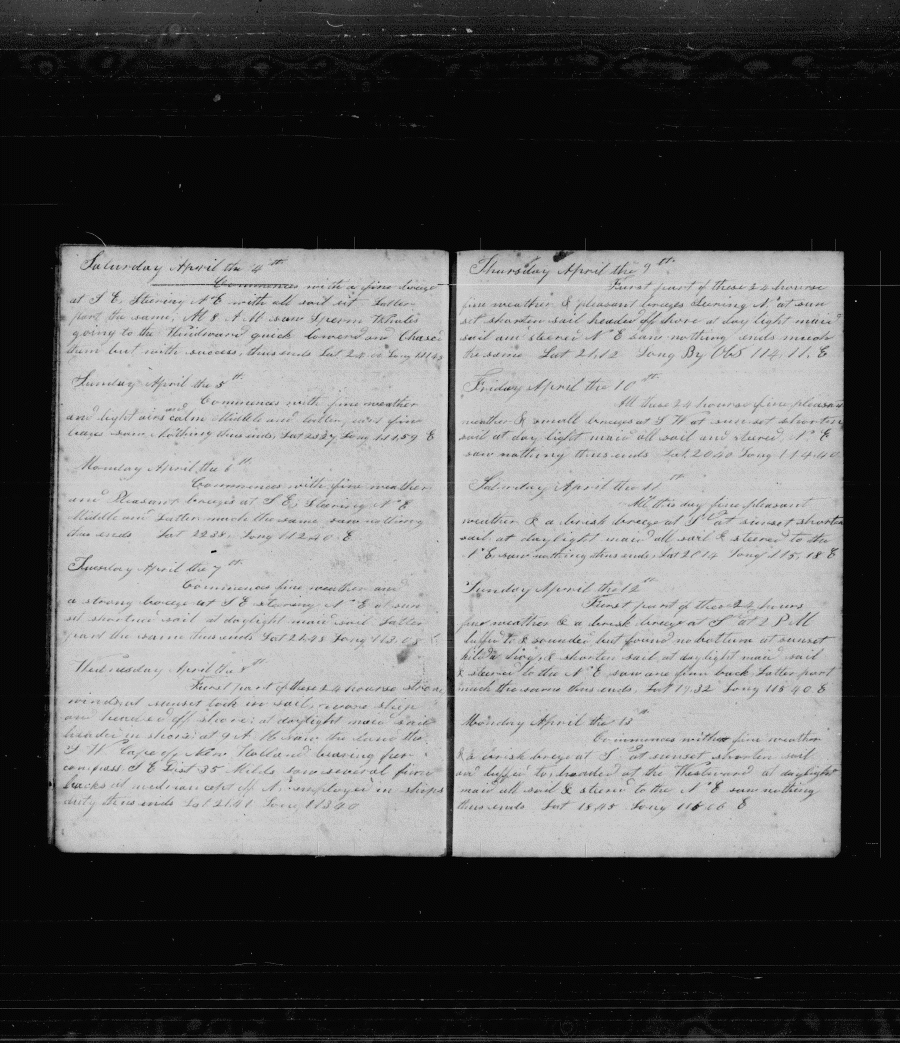 Saturday April the 4th
Commences with a fine breeze
at S E Stearing N E with all sail sit Latter
part the same At 8 A M saw Sperm Whales
going to the Windward quick lowered and Chased
them but with success, thus ends Lat 24
Sunday April the 5th
Commences with fine weather
and light airs and calm Middle and Latter
saw Nothing thus ends Lat 23 27 Long 111 59 E
Monday April the 6th
Commences with fine weather
and Pleasant breezes at S E, Stearing N E
Middle and Latter much the same saw nothing
thus ends Lat 22 38 Long 112 40 E
Tuesday April the 7th
Commences fine weather and
a strong breeze at S E stearing N E at sun
set shortned sail at daylight maid sail Latter
part the same thus ends Lat 22 48 Long 113 08
Wednesday April the 8th
Fiurst part of these 24 hourse strong
winds at sunset took in sail wore ship
and headed off shore at daylight maid sail
headed in shore at 9 A M saw the land the
S W Cape of New Holland bearing per
compass S E Dist 35 Miles saw several fine
backs at work employed in ships
duty thus ends Lat 21 41 Long 113 40
Thursday April the 9th
Fiurst part of these 24 hourse
fine weather & pleasant breezes Stearing N at sun
set shorten sail headed off shore at day light maid
sail and steered N E saw nothing ends much
the same Lat 21.12 Long By Obs 114.11. E
Friday April the 10th
All these 24 hourse fine pleasant
weather & small breezes at S W at sunset shorten
sail at day light maid all sail and steered N E
saw nothing thus ends Lat 20 40 Long 114 40
Saturday April the 11th
All this day fine pleasant
weather & a brisk breeze at S at sunset shorten
sail at daylight maid all sail & steered to the
N E saw nothing thus ends Lat 20 14 Long 115.18 E
Sunday April the 12th
Fiurst part of these 24 hours
fine weather & a brisk breeze at S at 2 P M
luffed to & sounded but found no bottom at sunset
& shorten sail at daylight maid sail
& steered to the N E saw one finn back Latter part
much the same thus ends, Lat 19.32 Long 115 40 E
Monday April the 13th
Commences with fine weather
& a brisk breeze at S at sunset shorten sail
and luffed to, headed to the Westward at daylight
maid all sail & steered to the N E saw nothing
thus ends Lat 18.45 Long 116 06 E